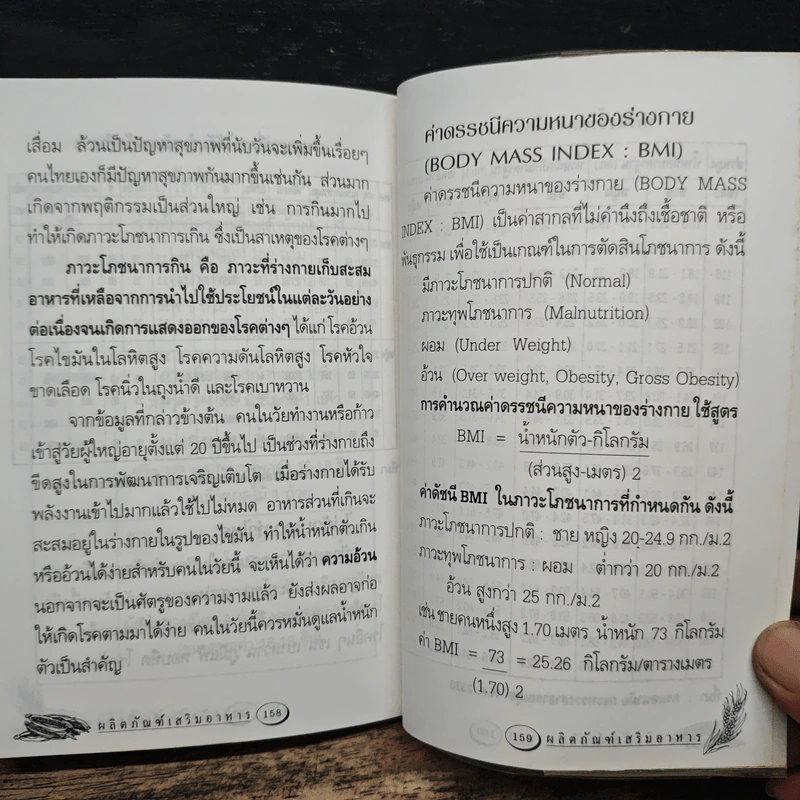 เสื่อม ล้วนเป็นปัญหาสุขภาพที่นับวันจะเพิ่มขึ้นเรื่อยๆ
คนไทยเองก็มีปัญหาสุขภาพกันมากขึ้นเช่นกัน ส่วนมาก
เกิดจากพฤติกรรมเป็นส่วนใหญ่ เช่น การกินมากไป
ทำให้เกิดภาวะโภชนาการเกิน ซึ่งเป็นสาเหตุของโรคต่างๆ
ภาวะโภชนาการกิน คือ ภาวะที่ร่างกายเก็บสะสม
อาหารที่เหลือจากการนำไปใช้ประโยชน์ในแต่ละวันอย่าง
ต่อเนื่องจนเกิดการแสดงออกของโรคต่างๆ ได้แก่ โรคอ้วน
โรคไขมันในโลหิตสูง โรคความดันโลหิตสูง โรคหัวใจ
ขาดเลือด โรคนิ่วในถุงน้ำดี และโรคเบาหวาน
จากข้อมูลที่กล่าวข้างต้น คนในวัยทำงานหรือก้าว
เข้าสู่วัยผู้ใหญ่อายุตั้งแต่ 20 ปีขึ้นไป เป็นช่วงที่ร่างกายถึง
ขีดสูงในการพัฒนาการเจริญเติบโต เมื่อร่างกายได้รับ
พลังงานเข้าไปมากแล้วใช้ไปไม่หมด อาหารส่วนที่เกินจะ
สะสมอยู่ในร่างกายในรูปของไขมัน ทำให้น้ำหนักตัวเกิน
หรืออ้วนได้ง่ายสำหรับคนในวัยนี้ จะเห็นได้ว่า ความอ้วน
นอกจากจะเป็นศัตรูของความงามแล้ว ยังส่งผลอาจก่อ
ให้เกิดโรคตามมาได้ง่าย คนในวัยนี้ควรหมั่นดูแลน้ำหนัก
ตัวเป็นสำคัญ
ผลิตภัณฑ์เสริมอาหาร 158
ค่าดรรชนีความหนาของร่างกาย
(BODY MASS INDEX : BMI)
ค่าดรรชนีความหนาของร่างกาย (BODY MASS
INDEX : BMI) เป็นค่าสากลที่ไม่คำนึงถึงเชื้อชาติ หรือ
พันธุกรรม เพื่อใช้เป็นเกณฑ์ในการตัดสินโภชนาการ ดังนี้
มีภาวะโภชนาการปกติ (Normal)
ภาวะทุพโภชนาการ (Malnutrition)
ผอม (Under Weight)
อ้วน (Over weight, Obesity, Gross Obesity)
การคำนวณค่าดรรชนีความหนาของร่างกาย ใช้สูตร
BMI = น้ำหนักตัว-กิโลกรัม
(ส่วนสูง-เมตร) 2
ค่าดัชนี BMI ในภาวะโภชนาการที่กำหนดกัน ดังนี้
ภาวะโภชนาการปกติ : ชาย หญิง 20-24.9 กก./ม.2
ภาวะทุพโภชนาการ : ผอม ต่ำกว่า 20 กก./ม.2
อ้วน สูงกว่า 25 กก./ม.2
เช่น ชายคนหนึ่งสูง 1.70 เมตร น้ำหนัก 73 กิโลกรัม
ค่า BMI = 73 = 25.26 กิโลกรัม/ตารางเมตร
(1.70) 2
159 ผลิตภัณฑ์เสริมอาหาร